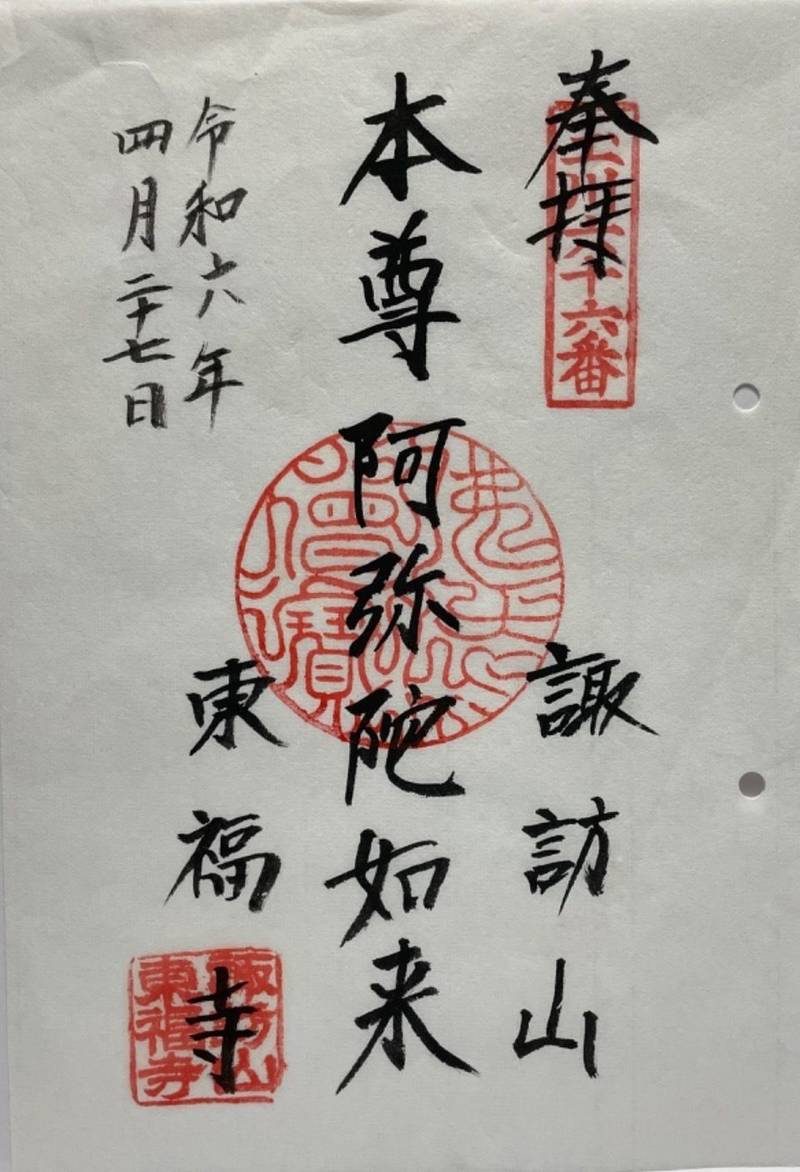 奉拝
六十六番
諏訪山
本尊阿弥陀如来
僧寶
令和六年
四月二十七日
東福寺
諏訪山
東福寺